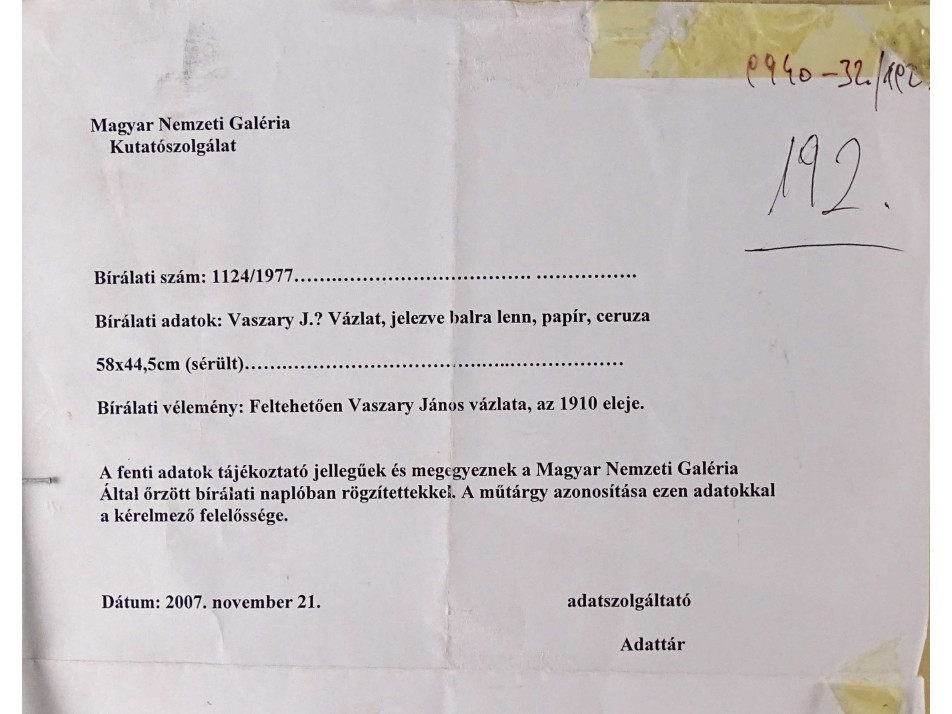 192.
Magyar Nemzeti Galéria
Kutatószolgálat
Bírálati szám: 1124/1977.......................................... .................
Bírálati adatok: Vaszary J.? Vázlat, jelezve balra lenn, papír, ceruza
58x44,5cm (sérült)................................................................
Bírálati vélemény: Feltehetően Vaszary János vázlata, az 1910 eleje.
A fenti adatok tájékoztató jellegűek és megegyeznek a Magyar Nemzeti Galéria
Által őrzött bírálati naplóban rögzítettekkel. A műtárgy azonosítása ezen adatokkal
a kérelmező felelőssége.
Dátum: 2007. november 21.
adatszolgáltató
Adattár